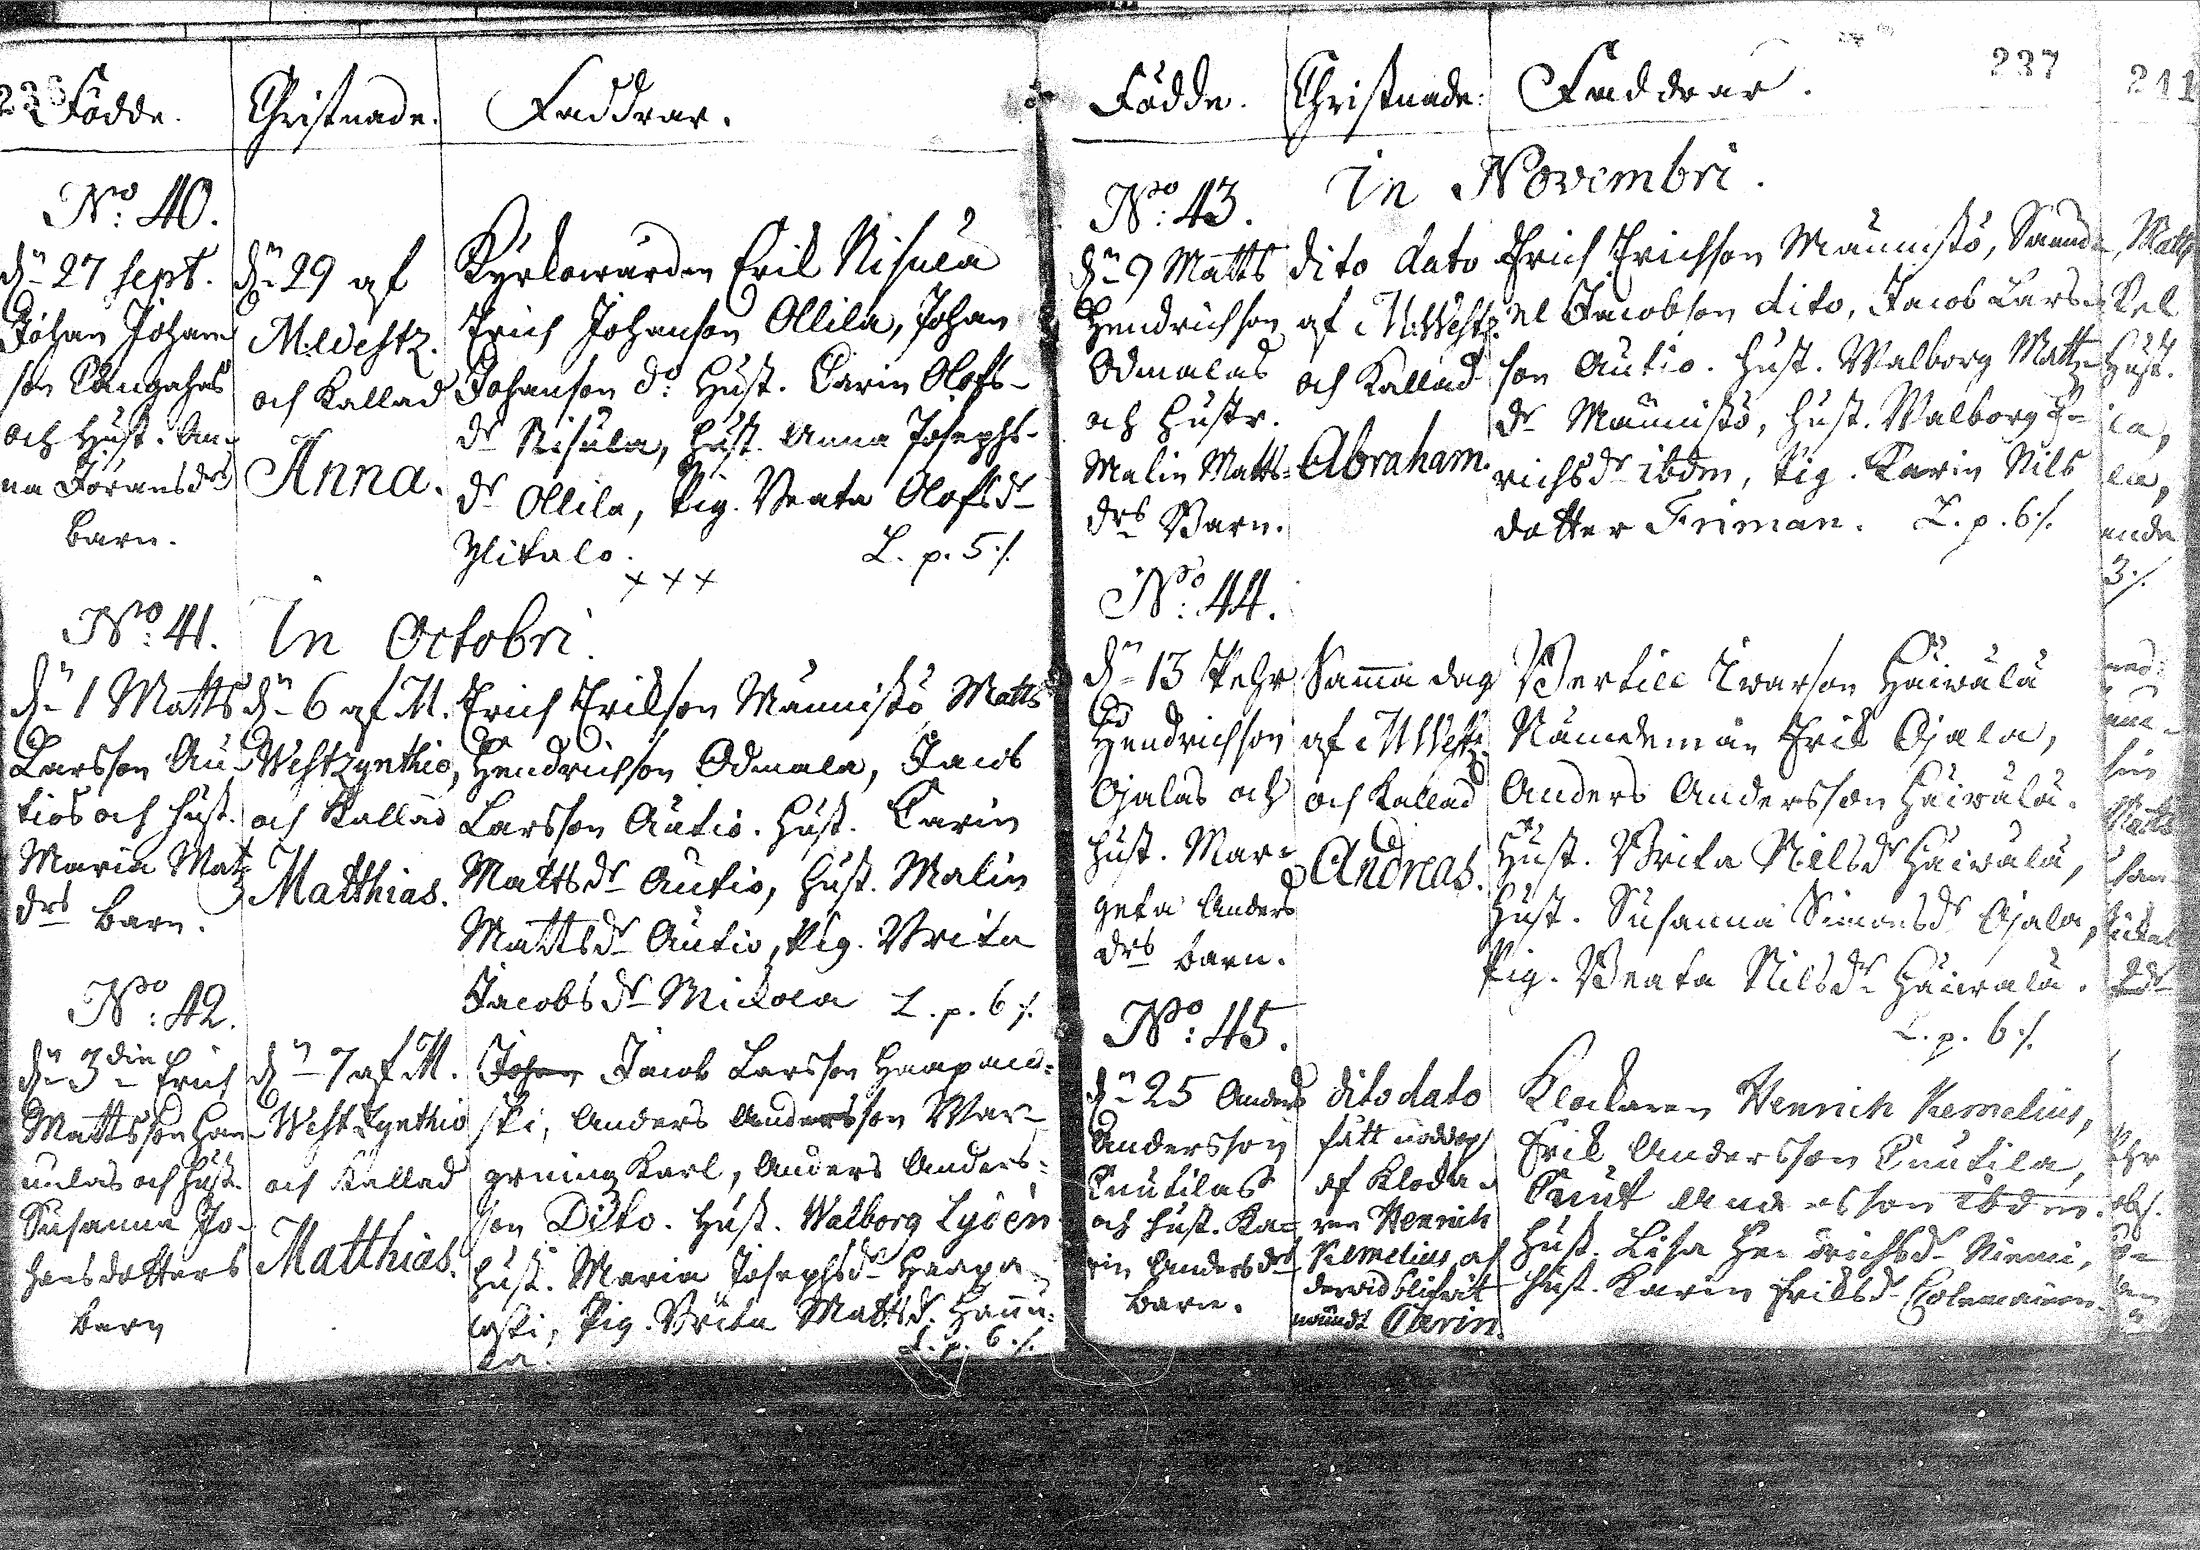 236 Födde. Christnade. Faddrar.
No: 40.
dn 27 Sept.
Johan Johan
son Kangahas
och Hust. An-
na Jöransdrs
barn.
dn 29 af
M. Westz.
och Kallad
Anna.
Kyrkowärden Erik Nisula
Erich Johanson Ollila, Johan
Johanson do: Hust. Carin Olofs-
dr Nisula, Hust. Anna Josephs-
dr Ollila, Pig. Beata Olofsdr
Ylitalo. L. p. 5 ./.
+ + +
No: 41. In Octobri.
dn 1 Matts
Larsson Au-
tios och hust.
Maria Matz
drs barn.
dn 6 af M.
Westzynthio,
och Kallad
Matthias.
Erich Erikson Männistö, Matts
Hendrichson Odmala, Jacob
Larsson Autio. Hust. Carin
Mattsdr Autio, Hust. Malin
Mattsdr Autio, Pig. Brita
Jacobsdr Mickola L. p. 6 ./.
No: 42.
dn 3die Erich
Mattsson Han-
nulas och Hust.
Susanna Jo-
hansdotters
barn
dn 7 af M.
Westzynthio
och Kallad
Matthias.
Jacob Larsson Haapaco-
ski, Anders Andersson War-
gruing Karl, Anders Anders-
son Dito. Hust. Walborg Lydén
Hust. Maria Josephsdr Haapa-
coski, Pig. Brita Mattsdr. Hannu-
la. L. p. 6 ./.
Födde. Christnade. Faddrar. 237
No: 43. In Novembri.
dn 9 Matts
Hendrichson
Odmalas
och Hustr.
Malin Matts-
drs Barn.
dito dato
af M. Westz.
och Kallad
Abraham.
Erich Erichson Männistö, Samu-
el Jacobson dito, Jacob Lars-
son Autio. Hust. Walborg Matts-
dr Männistö, Hust. Walborg E-
richsdr ibdm, Pig. Karin Nils
dotter Friman. L. p. 6 ./.
No: 44.
dn 13 Pehr
Hendrichson
Ojalas och
Hust. Mar-
geta Anders
drs barn.
Samma dag
af M Westz.
och Kallad
Andreas.
Bertill Iwarson Häiwälä
Nämdeman Erik Ojala,
Anders Andersson Häiwälä.
Hust. Brita Nilsdr Häiwälä,
Hust. Susanna Simonsdr Ojala,
Pig. Beata Nilsdr Häiwälä.
L. p. 6 ./.
No: 45.
dn 25 Anders
Andersson
Knutilas
och Hust. Ka-
rin Andersdrs
barn.
dito dato
fått nöddop
af Klocka-
ren Henrich
Kemelius och
derwid blifwit
nämdt Carin.
Klockaren Henrich Kemelius,
Erik Andersson Knutila,
Knut Andersson ibdm.
Hust. Lisa Hendrichsdr Niemi,
Hust. Karin Eriksdr
241